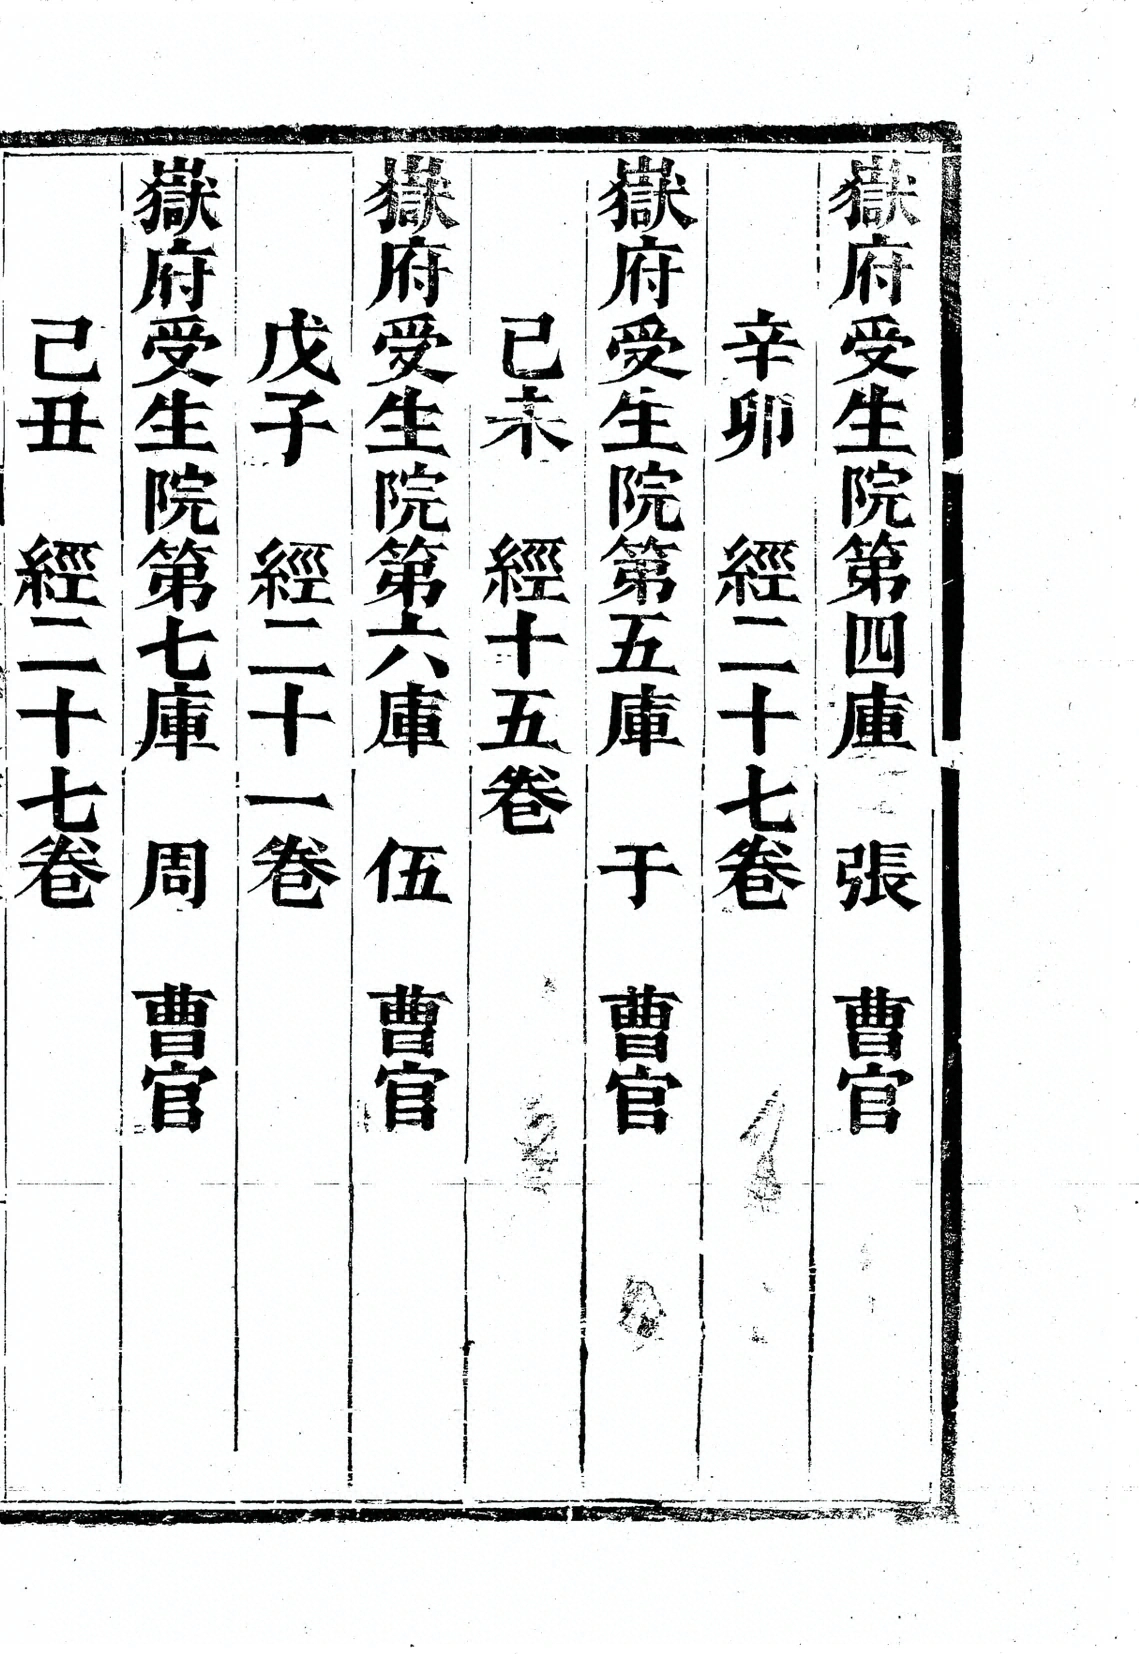 嶽府受生院第四庫　張　曹官
辛卯　經二十七卷
嶽府受生院第五庫　于　曹官
己未　經十五卷
嶽府受生院第六庫　伍　曹官
戊子　經二十一卷
嶽府受生院第七庫　周　曹官
己丑　經二十七卷